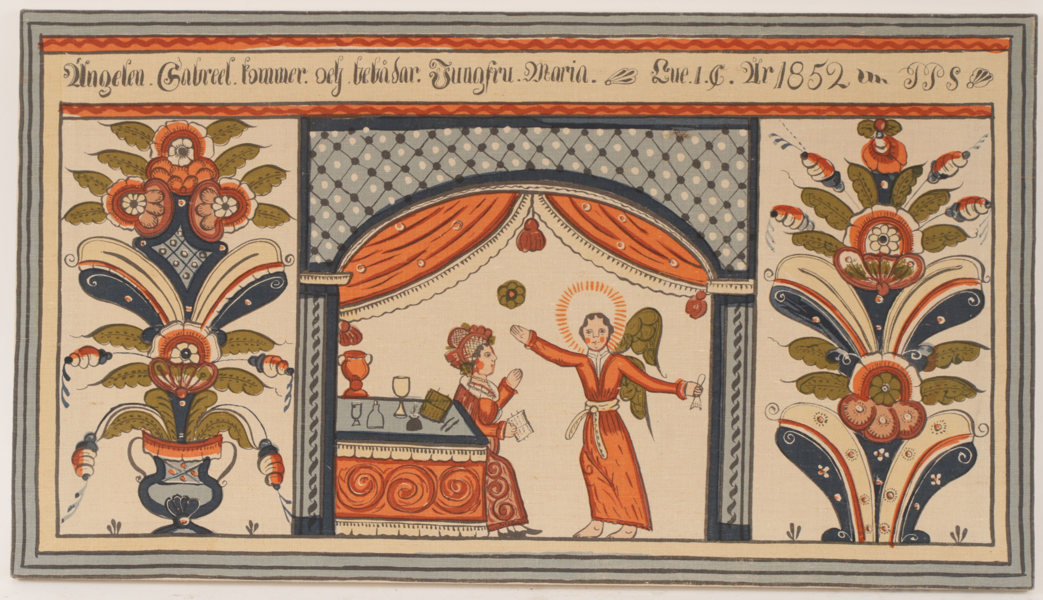 Ängelen. Gabreel. kommer. och bebådar. Jungfru. Maria. Luc. 1. C. År 1852 IPS